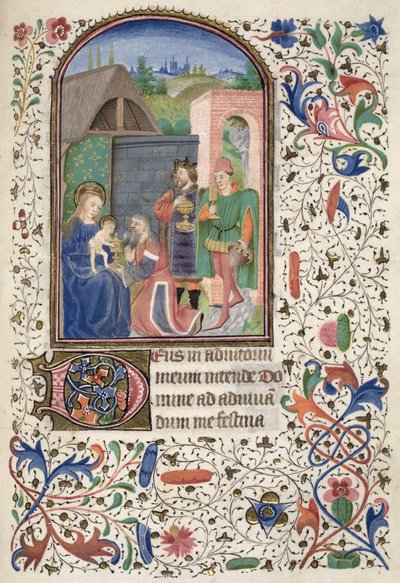 DEus in adiutoriū
meum intende Do
mine ad adiuuā
dum me festina